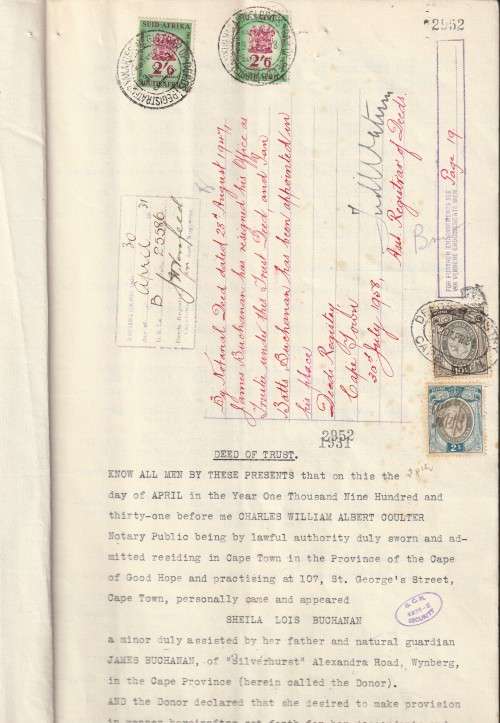 2952
SUID-AFRIKA
2/6
SOUTH AFRICA
2/6
SOUTH AFRICA
FOR FURTHER ENDORSEMENTS SEE
Page 19
By Notarial Deed dated 25th August 1947
James Buchanan has resigned his Office as
Trustee under this Trust Deed, and Ian
Batts Buchanan has been appointed in
his place
Deeds Registry
Cape Town
30th July 1958,
Asst Registrar of Deeds.
30 April 31
B 25586
2952
1931
DEED OF TRUST.
KNOW ALL MEN BY THESE PRESENTS that on this the
day of APRIL in the Year One Thousand Nine Hundred and
thirty-one before me CHARLES WILLIAM ALBERT COULTER
Notary Public being by lawful authority duly sworn and ad-
mitted residing in Cape Town in the Province of the Cape
of Good Hope and practising at 107, St. George's Street,
Cape Town, personally came and appeared
SHEILA LOIS BUCHANAN
a minor duly assisted by her father and natural guardian
JAMES BUCHANAN, of "Silverhurst" Alexandra Road, Wynberg,
in the Cape Province (herein called the Donor).
AND the Donor declared that she desired to make provision
SECURITY